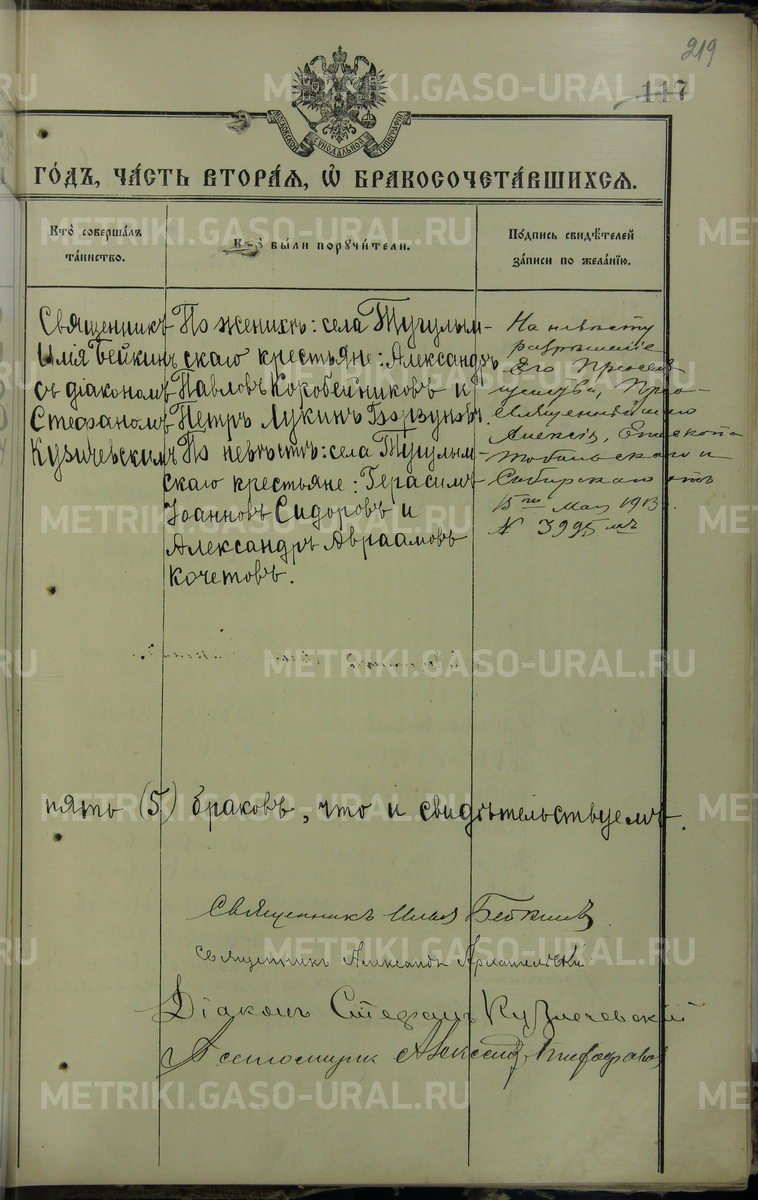 219
117
МОСКОВСКОЙ СѴНОДАЛЬНОЙ ТИПОГРАФІИ
ГО́ДЪ, ЧА́СТЬ ВТОРА́Я, Ѡ҆ БРАКОСОЧЕТА́ВШИХСЯ.
Кто̀ соверша́лъ
та́инство.
Кто̀ бы́ли порꙋчи́тели.
По́дпись свидѣ́телей
за́писи по жела́нїю.
Священникъ
Илія Бейкинъ
съ діакономъ
Стефаномъ
Кузнечевскимъ
По женихѣ: села Тугулым-
скаго крестьяне: Александръ
Павловъ Коробейниковъ и
Петръ Лукинъ Борзуновъ.
По невѣстѣ: села Тугулым-
скаго крестьяне: Герасимъ
Іоанновъ Сидоровъ и
Александръ Авраамовъ
Кочетовъ.
На невѣсту
разрѣшеніе
Его Преосвя-
щенства, Прео-
священнѣйшаго
Алексія, Епископа
Тобольскаго и
Сибирскаго отъ
15го Мая 1913 г.
№ 3995мъ
пять (5) браковъ, что и свидѣтельствуемъ.
Священникъ Илья Бейкинъ
священникъ Александръ
Діаконъ Стефанъ Кузнечевскій
Псаломщик Алексѣй
METRIKI.GASO-URAL.RU